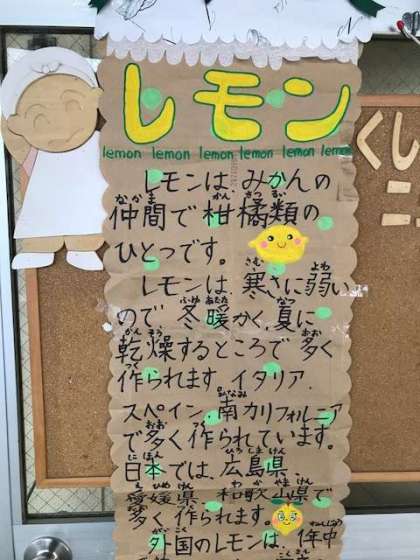 レモン
lemon lemon lemon lemon lemon lemon
レモンは、みかんの
仲間で柑橘類の
ひとつです。
レモンは、寒さに弱い
ので冬暖かく、夏に
乾燥するところで多く
作られます。イタリア、
スペイン、南カリフォルニア
で多く作られています。
日本では、広島県、
愛媛県、和歌山県で
多く作られます。
外国のレモンは、1年中
くし